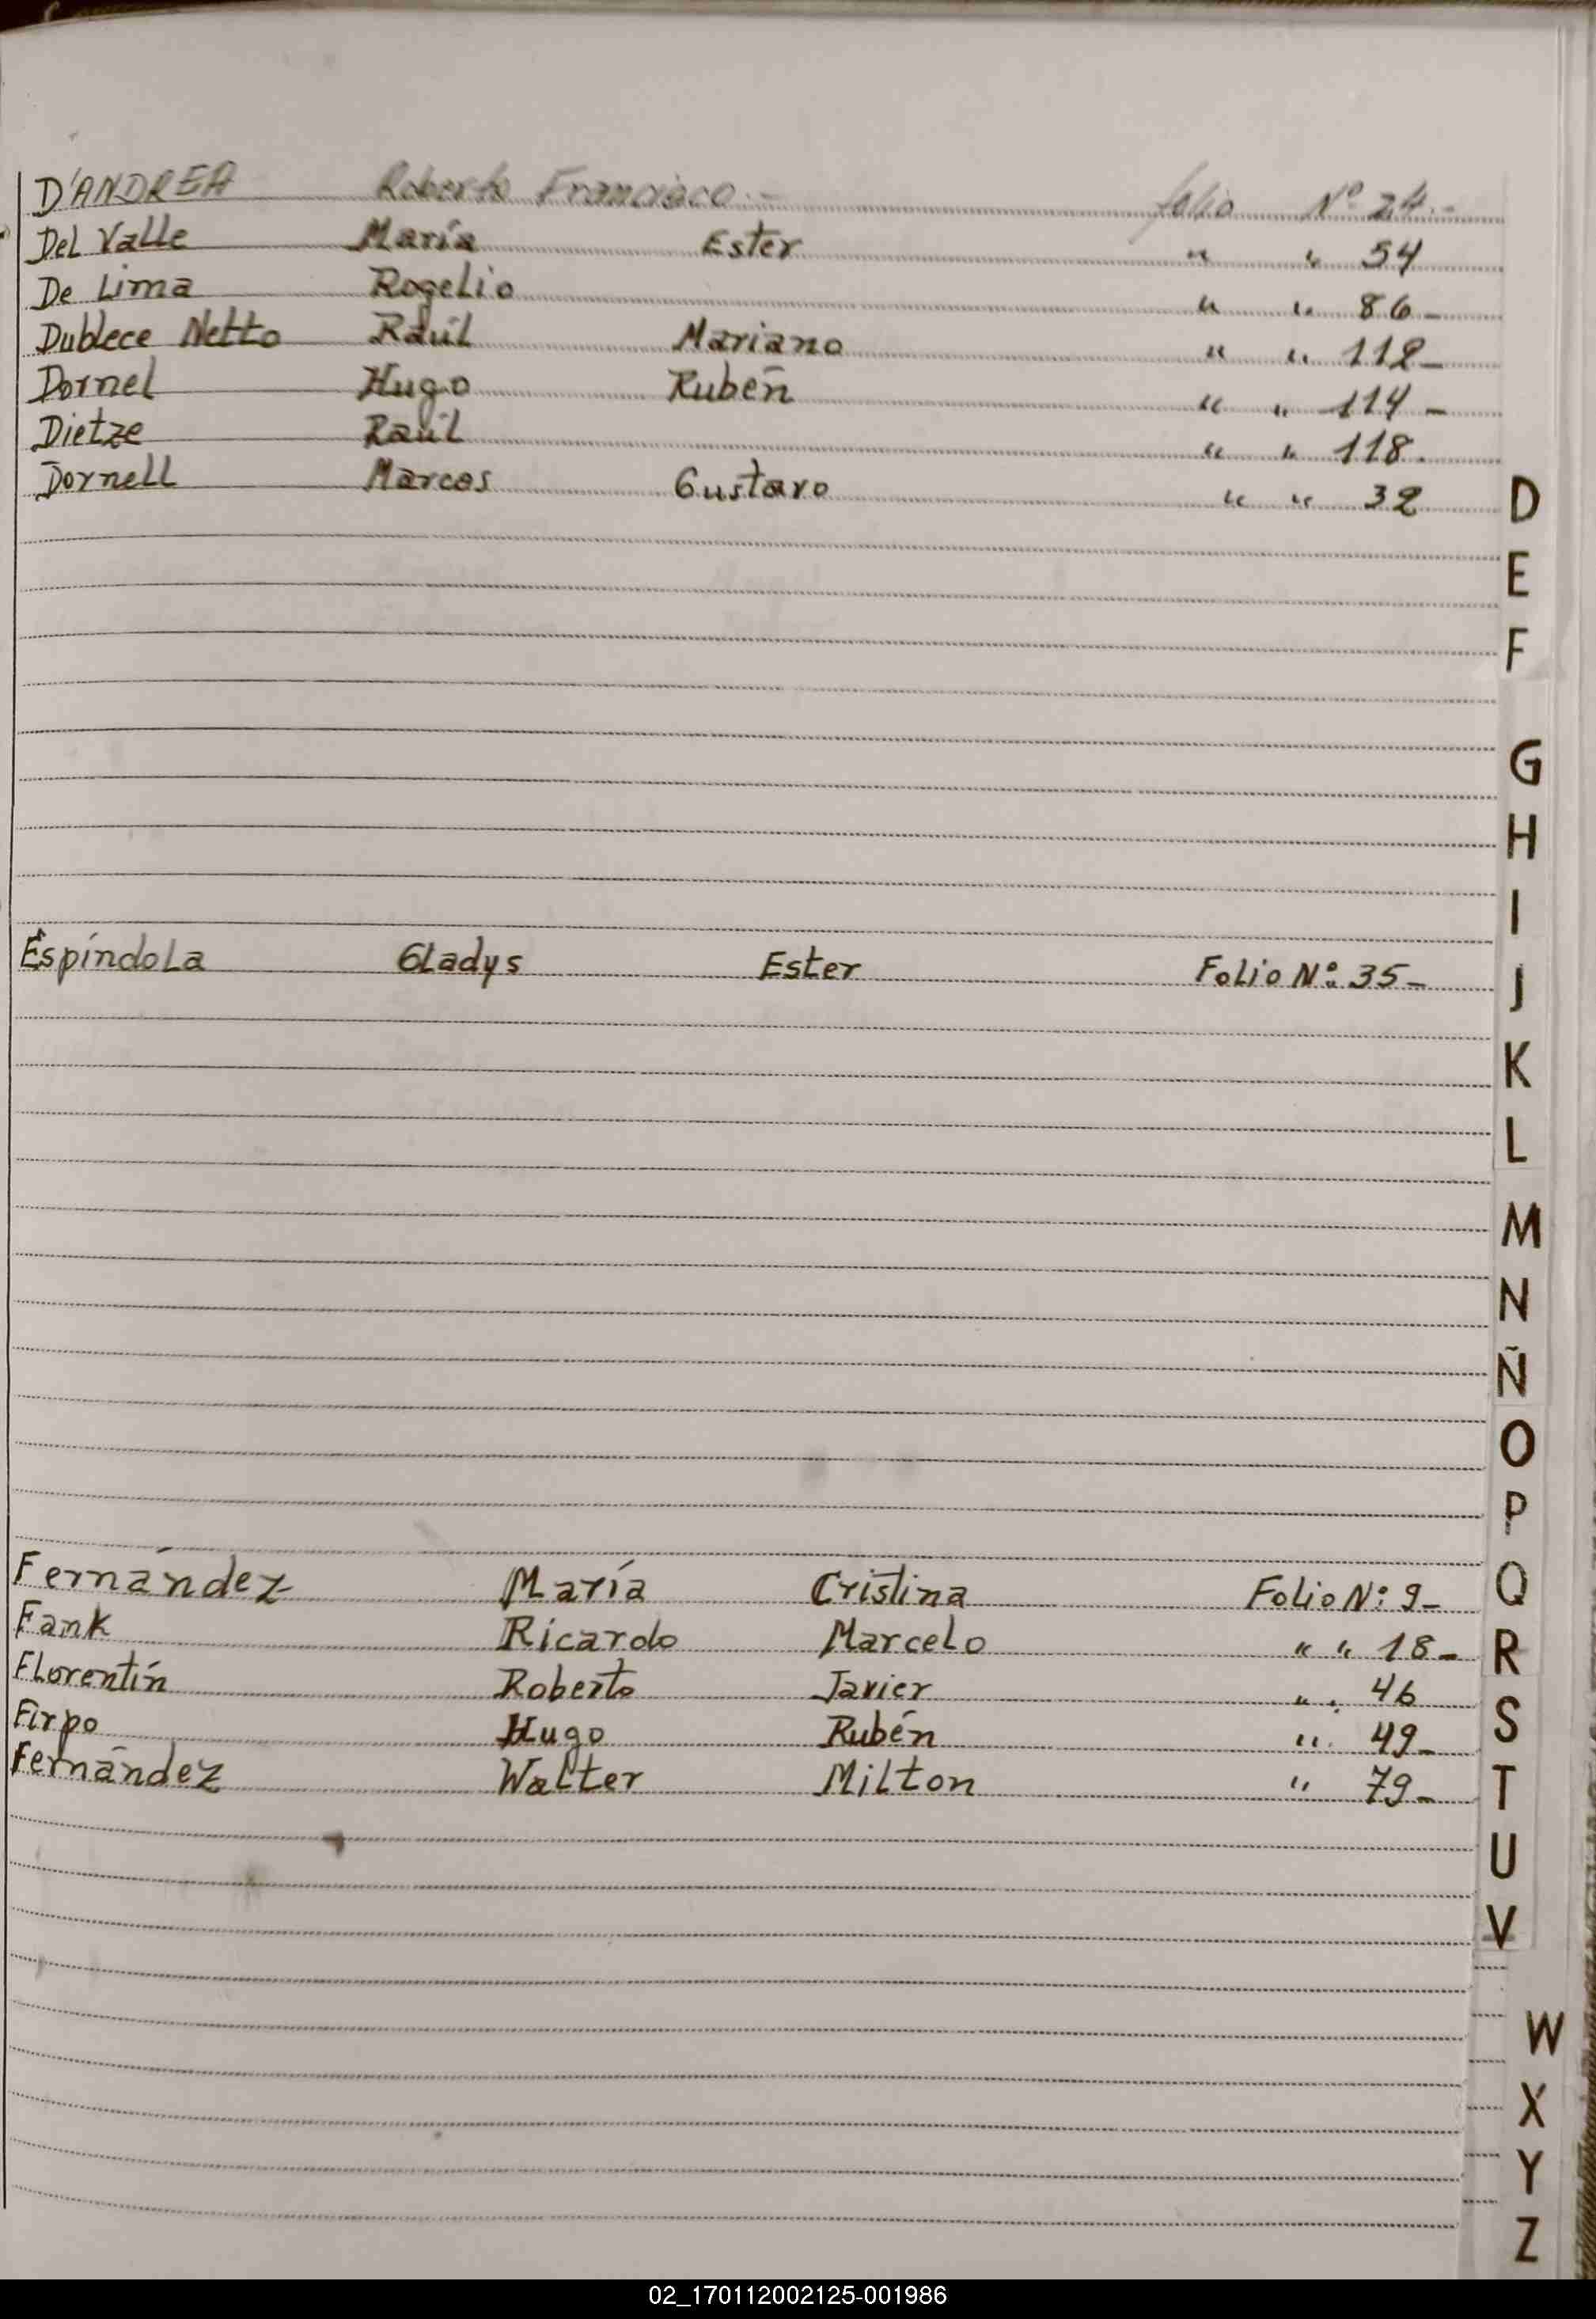 D'ANDREA Roberto Francisco.- folio Nº 24.-
Del Valle María Ester " " 54
De Lima Rogelio " " 86-
Dublece Netto Raúl Mariano " " 112-
Dornel Hugo Rubén " " 114-
Dietze Raúl " " 118.
Dornell Marcos Gustavo " " 32
D
E
F
G
H
I
Espíndola Gladys Ester Folio Nº: 35-
J
K
L
M
N
Ñ
O
P
Fernández María Cristina Folio N: 9-
Q
Fank Ricardo Marcelo " " 18-
R
Florentín Roberto Javier " " 46
Firpo Hugo Rubén " " 49-
S
Fernández Walter Milton " 79-
T
U
V
W
X
Y
Z
02_170112002125-001986